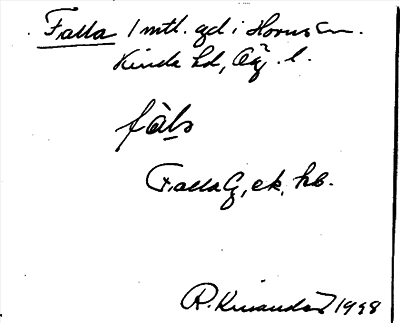 Falla 1 mtl. gd i Horns sn.
Kinda hd, Ög. l.
fàls
Falla G, ek. kb.
R. Kinander 1928